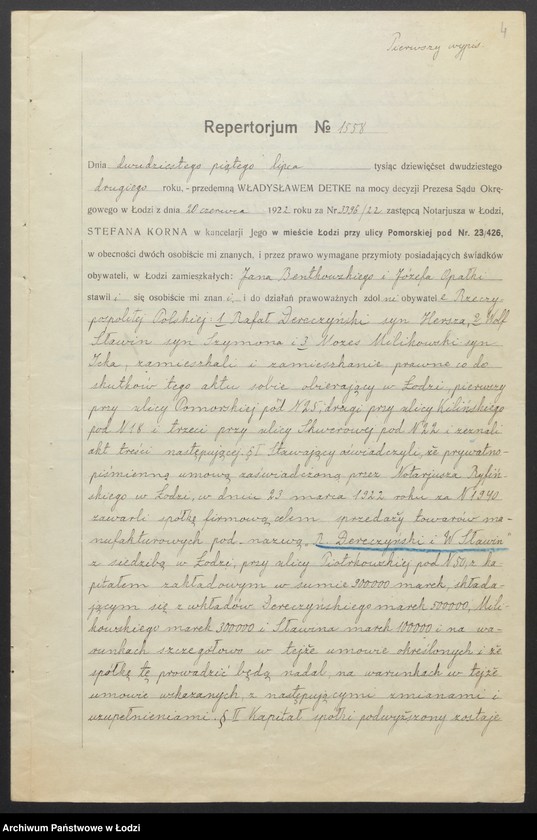 4
Pierwszy wypis.
Repertorjum № 1558
Dnia dwudziestego piątego lipca tysiąc dziewięćset dwudziestego
drugiego roku, - przedemną WŁADYSŁAWEM DETKE na mocy decyzji Prezesa Sądu Okrę-
gowego w Łodzi z dnia 20 czerwca 1922 roku za Nr. 3396/22 zastępcą Notarjusza w Łodzi,
STEFANA KORNA w kancelarji jego w mieście Łodzi przy ulicy Pomorskiej pod Nr. 23/426,
w obecności dwóch osobiście mi znanych, i przez prawo wymagane przymioty posiadających świadków
obywateli, w Łodzi zamieszkałych: Jana Bentkowskiego i Józefa Opałki
stawili się osobiście mi znani, i do działań prawoważnych zdolni obywatele Rzeczy-
pospolitej Polskiej: 1 Rafał Dereczyński syn Hersza, 2 Wolf
Sławin syn Szymona i 3 Mozes Melikowski syn
Icka, zamieszkali i zamieszkanie prawne co do
skutków tego aktu sobie obierający w Łodzi, pierwszy
przy ulicy Pomorskiej pod N 25, drugi przy ulicy Kilińskiego
pod N 18 i trzeci przy ulicy Skwerowej pod N 22 i zeznali
akt treści następującej: § I Stawający oświadczyli, że prywatno-
piśmienną umową zaświadczoną przez Notarjusza Ryfiń-
skiego w Łodzi, w dniu 23 marca 1922 roku za N 1940
zawarli spółkę firmową celem sprzedaży towarów ma-
nufakturowych pod nazwą „R. Dereczyński i W. Sławin"
z siedzibą w Łodzi, przy ulicy Piotrkowskiej pod N 50, z ka-
pitałem zakładowym w sumie 900000 marek, składa-
jącym się z wkładów Dereczyńskiego marek 500000, Meli-
kowskiego marek 300000 i Sławina marek 100000 i na wa-
runkach szczegółowo w tejże umowie określonych i że
spółkę tę prowadzić będą nadal, na warunkach w tejże
umowie wskazanych, z następującymi zmianami i
uzupełnieniami. § II Kapitał spółki podwyższony zostaje
Archiwum Państwowe w Łodzi